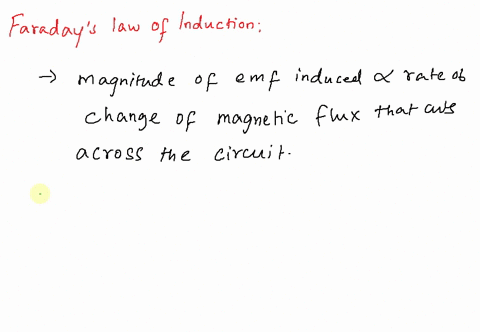 Faraday's law of Induction:
→ magnitude of emf induced ∝ rate of
change of magnetic flux that cuts
across the circuit.